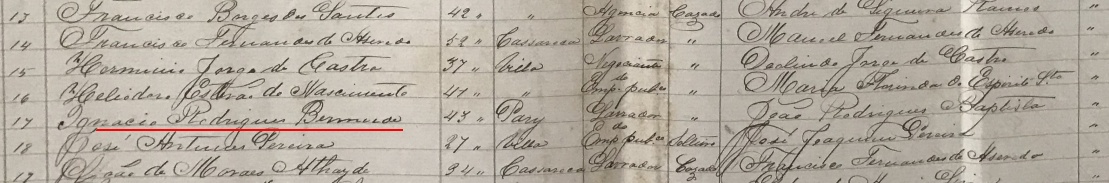 13 Francisco Borges dos Santos 42 " " Agencia Cazado André de Siqueira Ramos "
14 Francisco Fernandes de Azeredo 52 " Cassaroca Lavrador " Manoel Fernandes de Azeredo "
15 Herminio Jorge de Castro 37 " Villa Negociante " Deolindo Jorge de Castro "
16 Heliodoro do Nascimento 41 " " Emp. publico " Maria Florinda do Espirito Sto "
17 Ignacio Rodrigues Bermudo 43 " Pary Lavrador " João Rodrigues Baptista "
18 José Antunes Pereira 27 " Villa Emp. publico Solteiro José Joaquim Pereira "
19 João de Moraes Athayde 34 " Cassaroca Lavrador Cazado Francisco Fernandes de Azeredo "